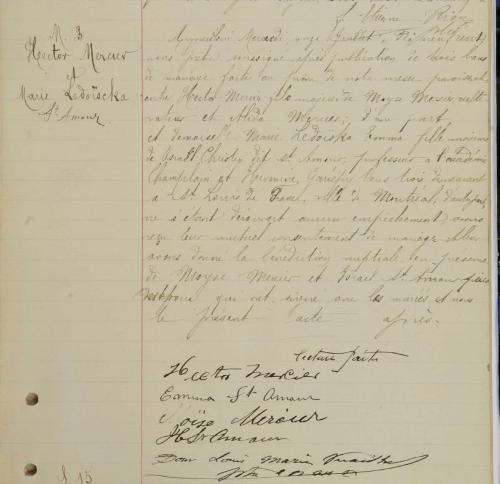 M. 3
Hector Mercier
et
Marie Ledoïscka
St Amour
nous prêtre soussigné après publication de trois bans
de mariage faite au prône de notre messe paroissiale
entre Hector Mercier fils majeur de Moyse Mercier culti-
vateur et Alida Mercier, d'une part,
et demoiselle Marie Ledoïska Emma fille mineure
de Israël Christin dit St. Amour, professeur à l'académie
Champlain et Hermine Gariépy tous trois demeurant
à St. Louis de France, ville de Montréal, d'autre part,
ne s'étant découvert aucun empêchement, avons
reçu leur mutuel consentement de mariage et leur
avons donné la bénédiction nuptiale en présence
de Moyse Mercier et Israël St. Amour pères
des époux qui ont signé avec les mariés et nous
le présent acte après.
lecture faite
Hector Mercier
Emma St Amour
Moïse Mercier
St Amour
Dom Louis Marie
S. 15